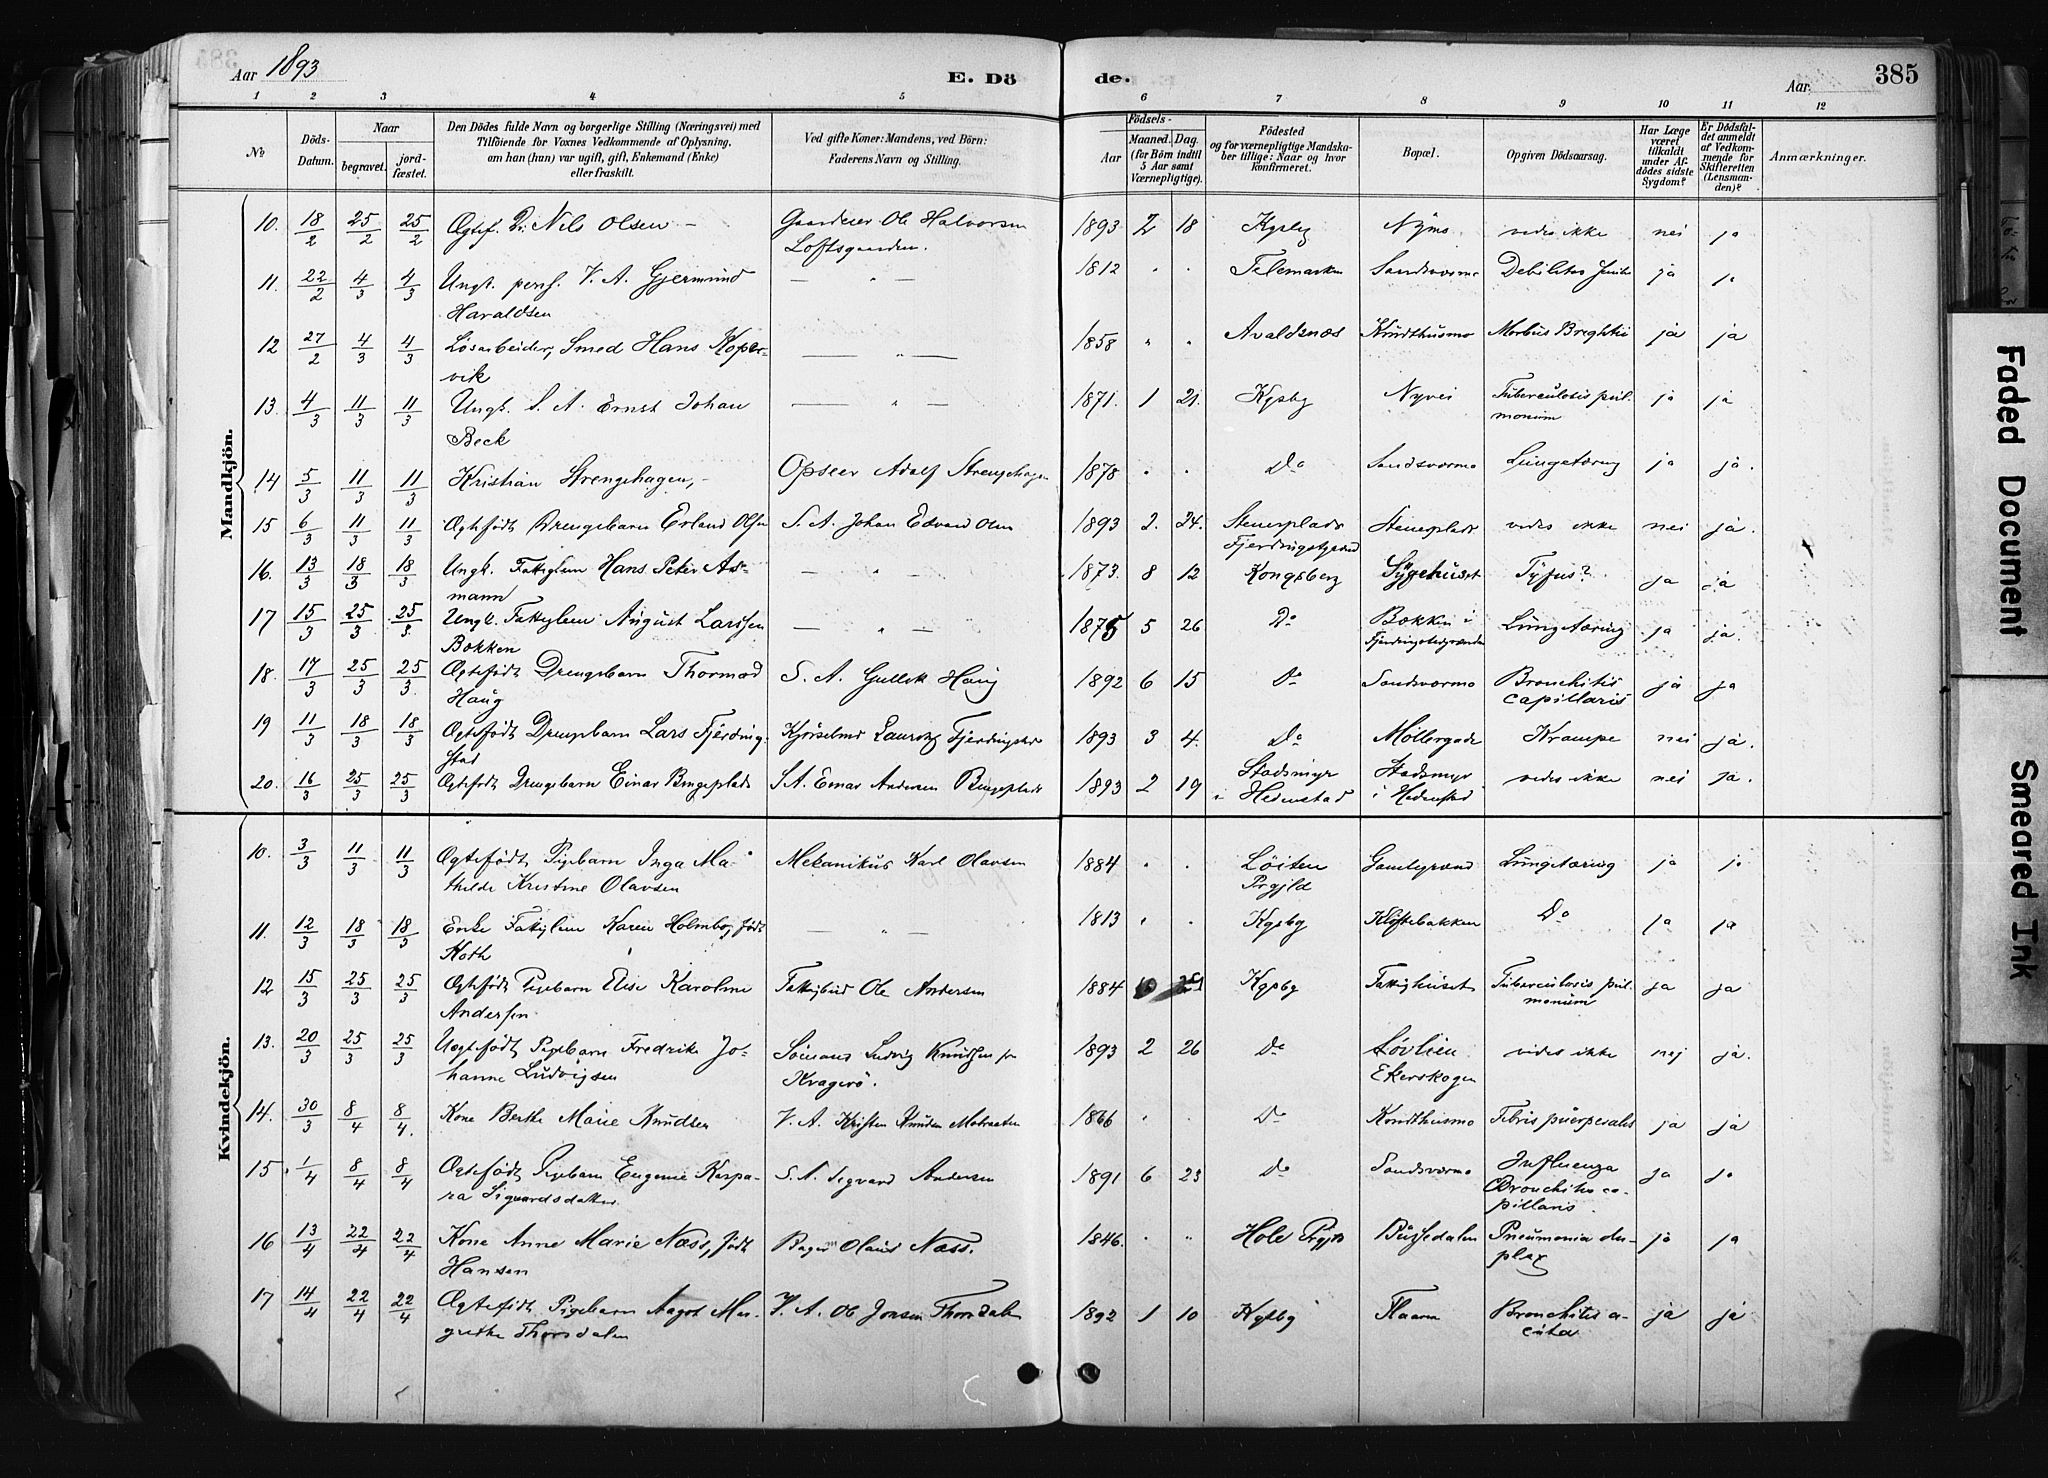 Aar 1893
E. Dö
de.
Aar
385
1 2 3 4 5 6 7 8 9 10 11 12
No
Döds-Datum.
Naar
begravet.
jord-fæstet.
Den Dödes fulde Navn og borgerlige Stilling (Næringsvei) med
Tilföiende for Voxnes Vedkommende af Oplysning,
om han (hun) var ugift, gift, Enkemand (Enke)
eller fraskilt.
Ved gifte Koner: Mandens, ved Börn:
Faderens Navn og Stilling.
Födsels-
Aar
Maaned.
Dag.
(for Börn indtil
5 Aar samt
Værnepligtige).
Födested
og for værnepligtige Mandska-
ber tillige: Naar og hvor
konfirmeret.
Bopæl.
Opgiven Dödsaarsag.
Har Læge
været
tilkaldt
under Af-
dödes sidste
Sygdom?
Er Dödsfal-
det anmeldt
af Vedkom-
mende for
Skifteretten
(Lensman-
den)?
Anmærkninger.
Mandkjön.
10. 18/2 25/2 25/2 Ægtef. Nils Olsen – Gaardeier Ole Halvorsen 1893 2 18 Kgsbg Nÿms vides ikke nei ja
Loftsgaarden.
11. 22/2 4/3 4/3 Ungk. pens. V. A. Gjermund — " — 1812 " " Telemarken Sandsværmo Debilitas ja ja
Haraldsen
12 27/2 4/3 4/3 Løsarbeider, Smed Hans Koper- — " — 1858 " " Avaldsnæs Knudthusmo Morbus Breghtii ja ja
vik
13. 4/3 11/3 11/3 Ungk. S. A. Ernst Johan — " — 1871. 1 21. Kgsbg Nyvei Tuberculosis pul- ja ja
Beck monum
14 5/3 11/3 11/3 Kristian Strengehagen, – Opseer Adolf Strengehagen 1878 " " Do Sandsværmo Lungetæring ja ja.
15 6/3 11/3 11/3 Ægtefødt Drengebarn Erland Olsen S. A. Johan Edvard Olsen 1893 2. 24. Stenesplads Stenesplads vides ikke nei ja.
16. 13/3 18/3 18/3 Ungk. Fattiglem Hans Peter As- — " — 1873. 8 12 Kongsberg Sÿgehuset Tÿfus? ja ja
mann
17 15/3 25/3 25/3 Ungk. Fattiglem August Larssen — " — 1875 5 26 Do Bakken i Lungetæring ja ja.
Bakken
18. 17/3 25/3 25/3 Ægtefødt Drengebarn Thormod S. A. Gullik Haug 1892 6 15 Do Sandsværmo Bronchitis ja ja
Haug capillaris
19 11/3 18/3 18/3 Ægtefødt Drengebarn Lars Fjerding- Kjørselmd Lauritz Fjerdingstad 1893 3 4. Do Møllergade Krampe nei ja.
stad
20. 16/3 25/3 25/3 Ægtefødt Drengebarn Einar Bingeplads S. A. Einar Andersen Bingeplads 1893 2 19 Stadsmyr Stadsmyr vides ikke nei ja.
i Hedenstad i Hedenstad
Kvindekjön.
10. 3/3 11/3 11/3 Ægtefødt Pigebarn Inga Ma- Mekanikus Karl Olavsen 1884 " " Løiten Gamlegrænd Lungetæring ja ja
thilde Kristine Olavsen Prgjld
11. 12/3 18/3 18/3 Enke Fattiglem Karen Holmboe, født — " — 1813 " " Kgsbg Kløftebakken Do ja ja
Koth
12 15/3 25/3 25/3 Ægtefødt Pigebarn Elise Karoline Fattigbud Ole Andersen 1884 10 Kgsbg Fattighuset Tuberculosis pul- ja ja
Andersen monum
13. 20/3 25/3 25/3 Uægtefødt Pigebarn Fredrike Jo- Sömans Ludvig Knudsen fr 1893 2 26 Do Løvlien vides ikke nej ja.
hanne Ludvigsen Kragerö. Ekerskogen
14. 30/3 8/4 8/4. Kone Berthe Marie Knudsen V. A. Kristen Knudsen Mobraaten 1866 " " Do Knudthusmo Febris puerperalis ja ja
15 1/4 8/4 8/4 Ægtefødt Pigebarn Eugenie Kaspa- S. A. Sigvard Andersen 1891 6 23 Do Sandsværmo Influenza ja ja
ra Sigvardsdatter Bronchitis ca-
pillaris.
16 13/4 22/4 22/4 Kone Anne Marie Næss, født Bager Olaus Næss. 1846. " " Hole Prgjld Bussedalen Pneumonia du- ja ja
Hansen plex
17 14/4 22/4 22/4 Ægtefødt Pigebarn Aagot Mar- V. A. Ole Jonsen Thorsdalen 1892 1 10 Kgsbg Flaata Bronchitis a- ja ja
grethe Thorsdalen cuta
Faded Document
Smeared Ink